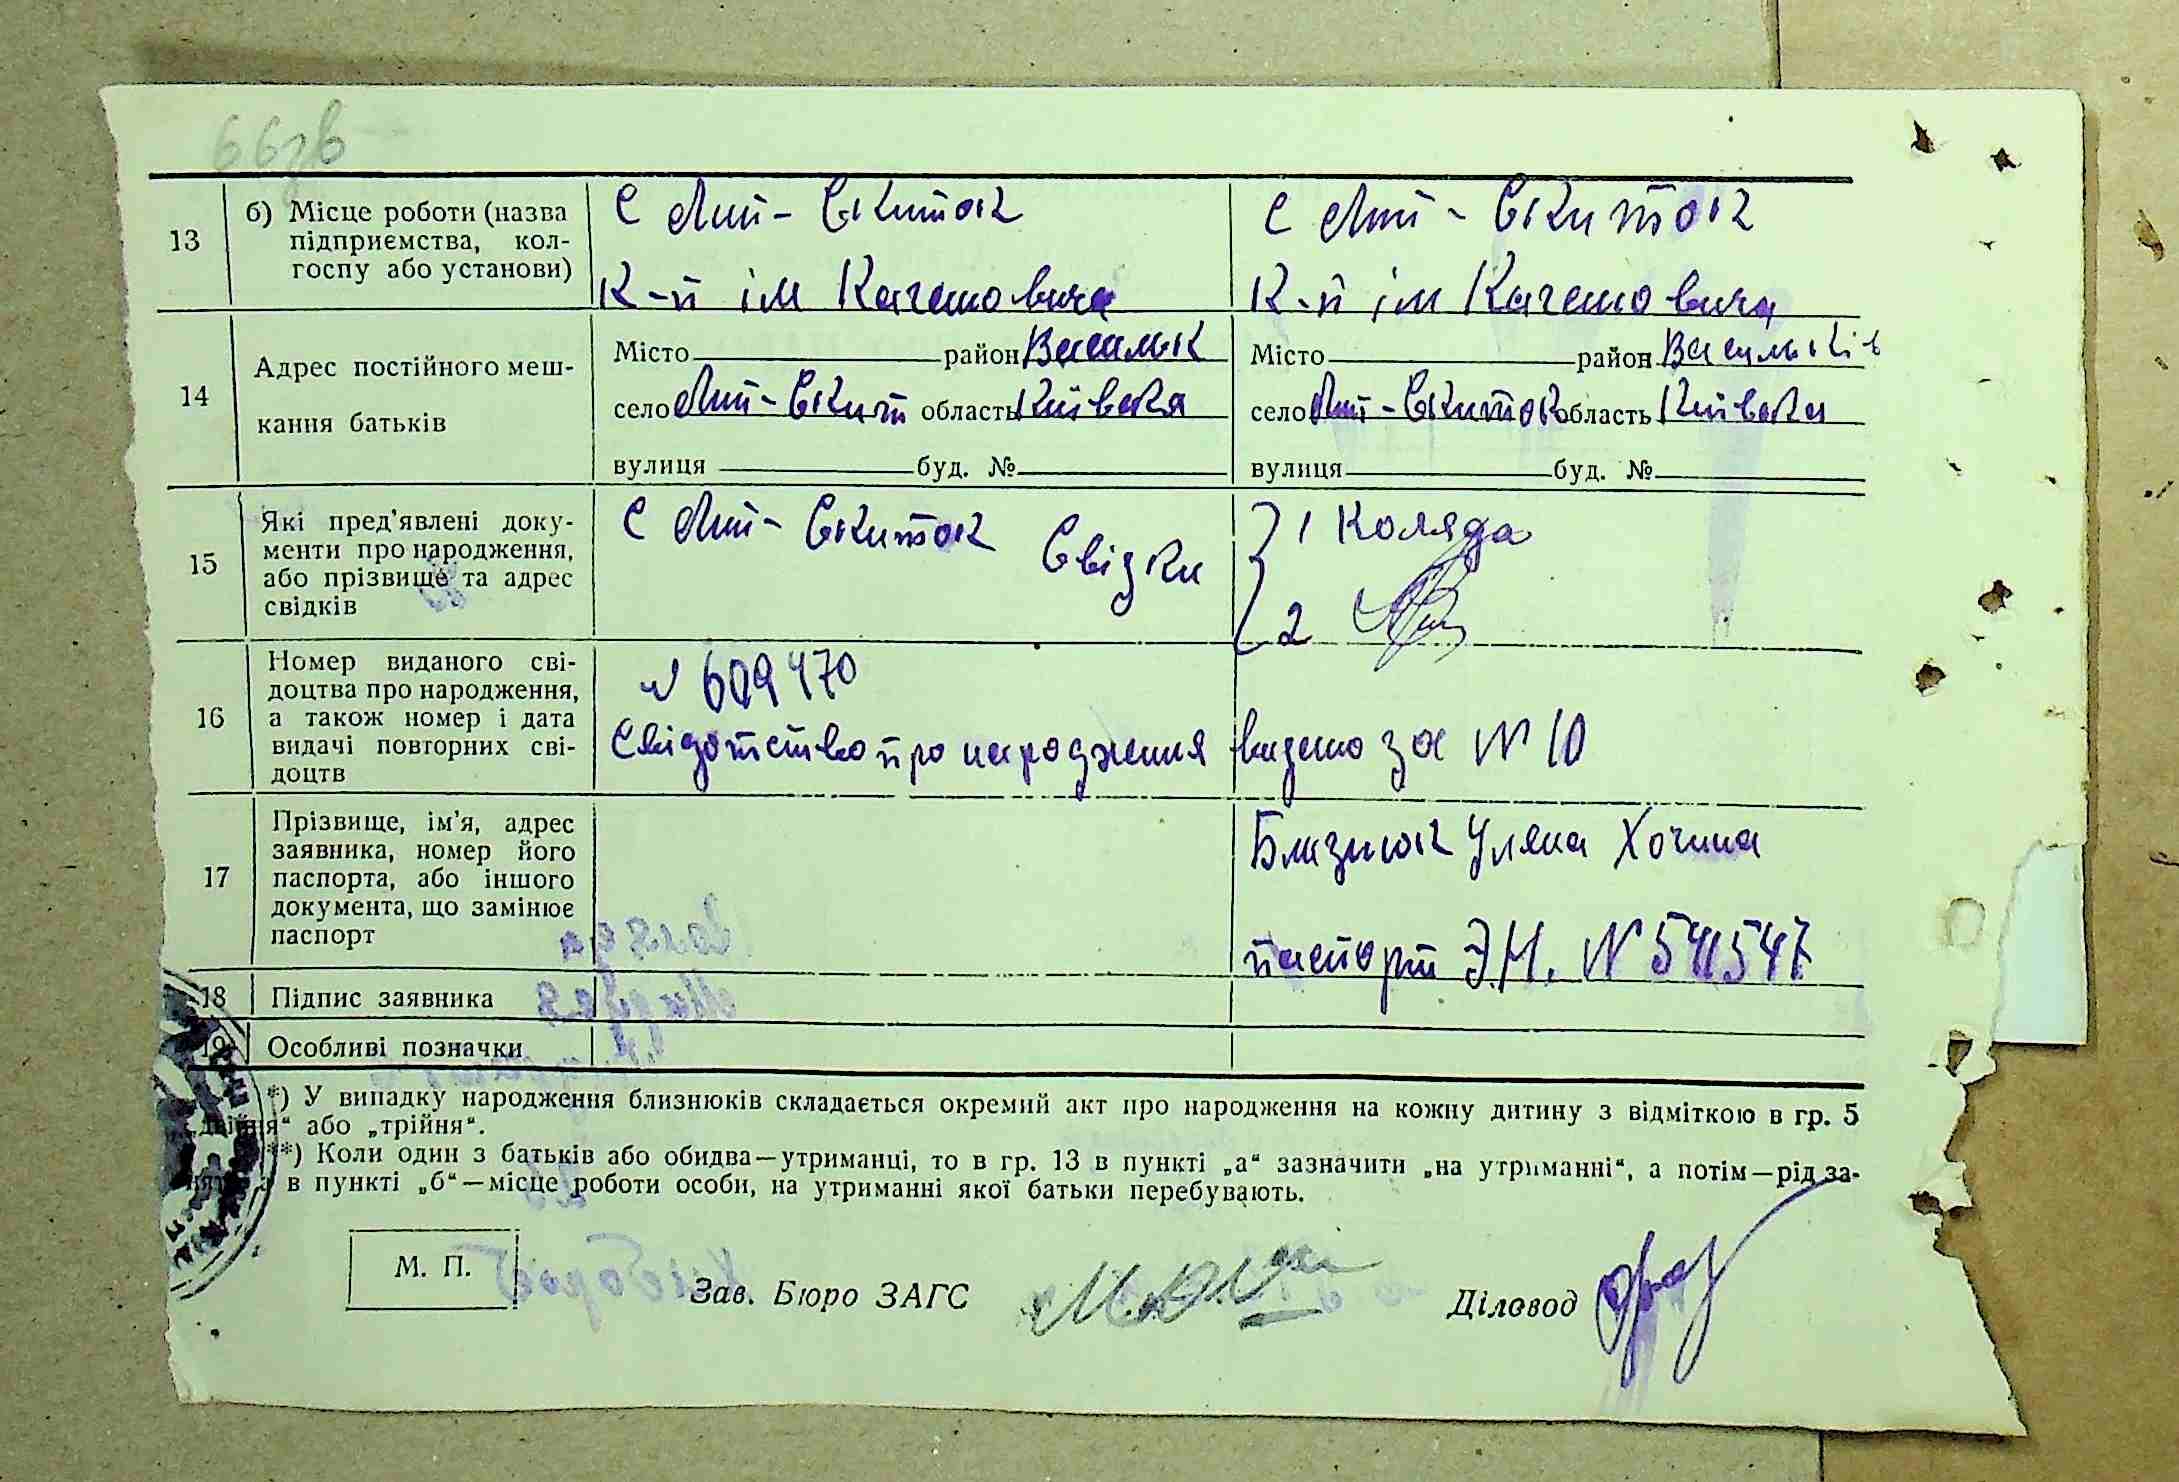 66зв
13
б) Місце роботи (назва
підприємства, кол-
госпу або установи)
с Мит-Скиток
К-п ім Кагановича
с Мит-Скиток
К-п ім Кагановича
14
Адрес постійного меш-
кання батьків
Місто район Васильк
село Мит-Скит область Київська
вулиця буд. №
Місто район Васильків
село Мит-Скиток область Київска
вулиця буд. №
15
Які пред'явлені доку-
менти про народження,
або прізвище та адрес
свідків
с Мит-Скиток Свідки
1 Коляда
2
16
Номер виданого сві-
доцтва про народження,
а також номер і дата
видачі повторних сві-
доцтв
N 609470
Свідотство про народження видано за N 10
17
Прізвище, ім'я, адрес
заявника, номер його
паспорта, або іншого
документа, що замінює
паспорт
Близнюк Уляна
паспорт Э.М. N 541547
18
Підпис заявника
19
Особливі позначки
*) У випадку народження близнюків складається окремий акт про народження на кожну дитину з відміткою в гр. 5
„двійня“ або „трійня“.
**) Коли один з батьків або обидва—утриманці, то в гр. 13 в пункті „а“ зазначити „на утриманні“, а потім—рід за-
няття, а в пункті „б“—місце роботи особи, на утриманні якої батьки перебувають.
М. П.
Зав. Бюро ЗАГС
Діловод